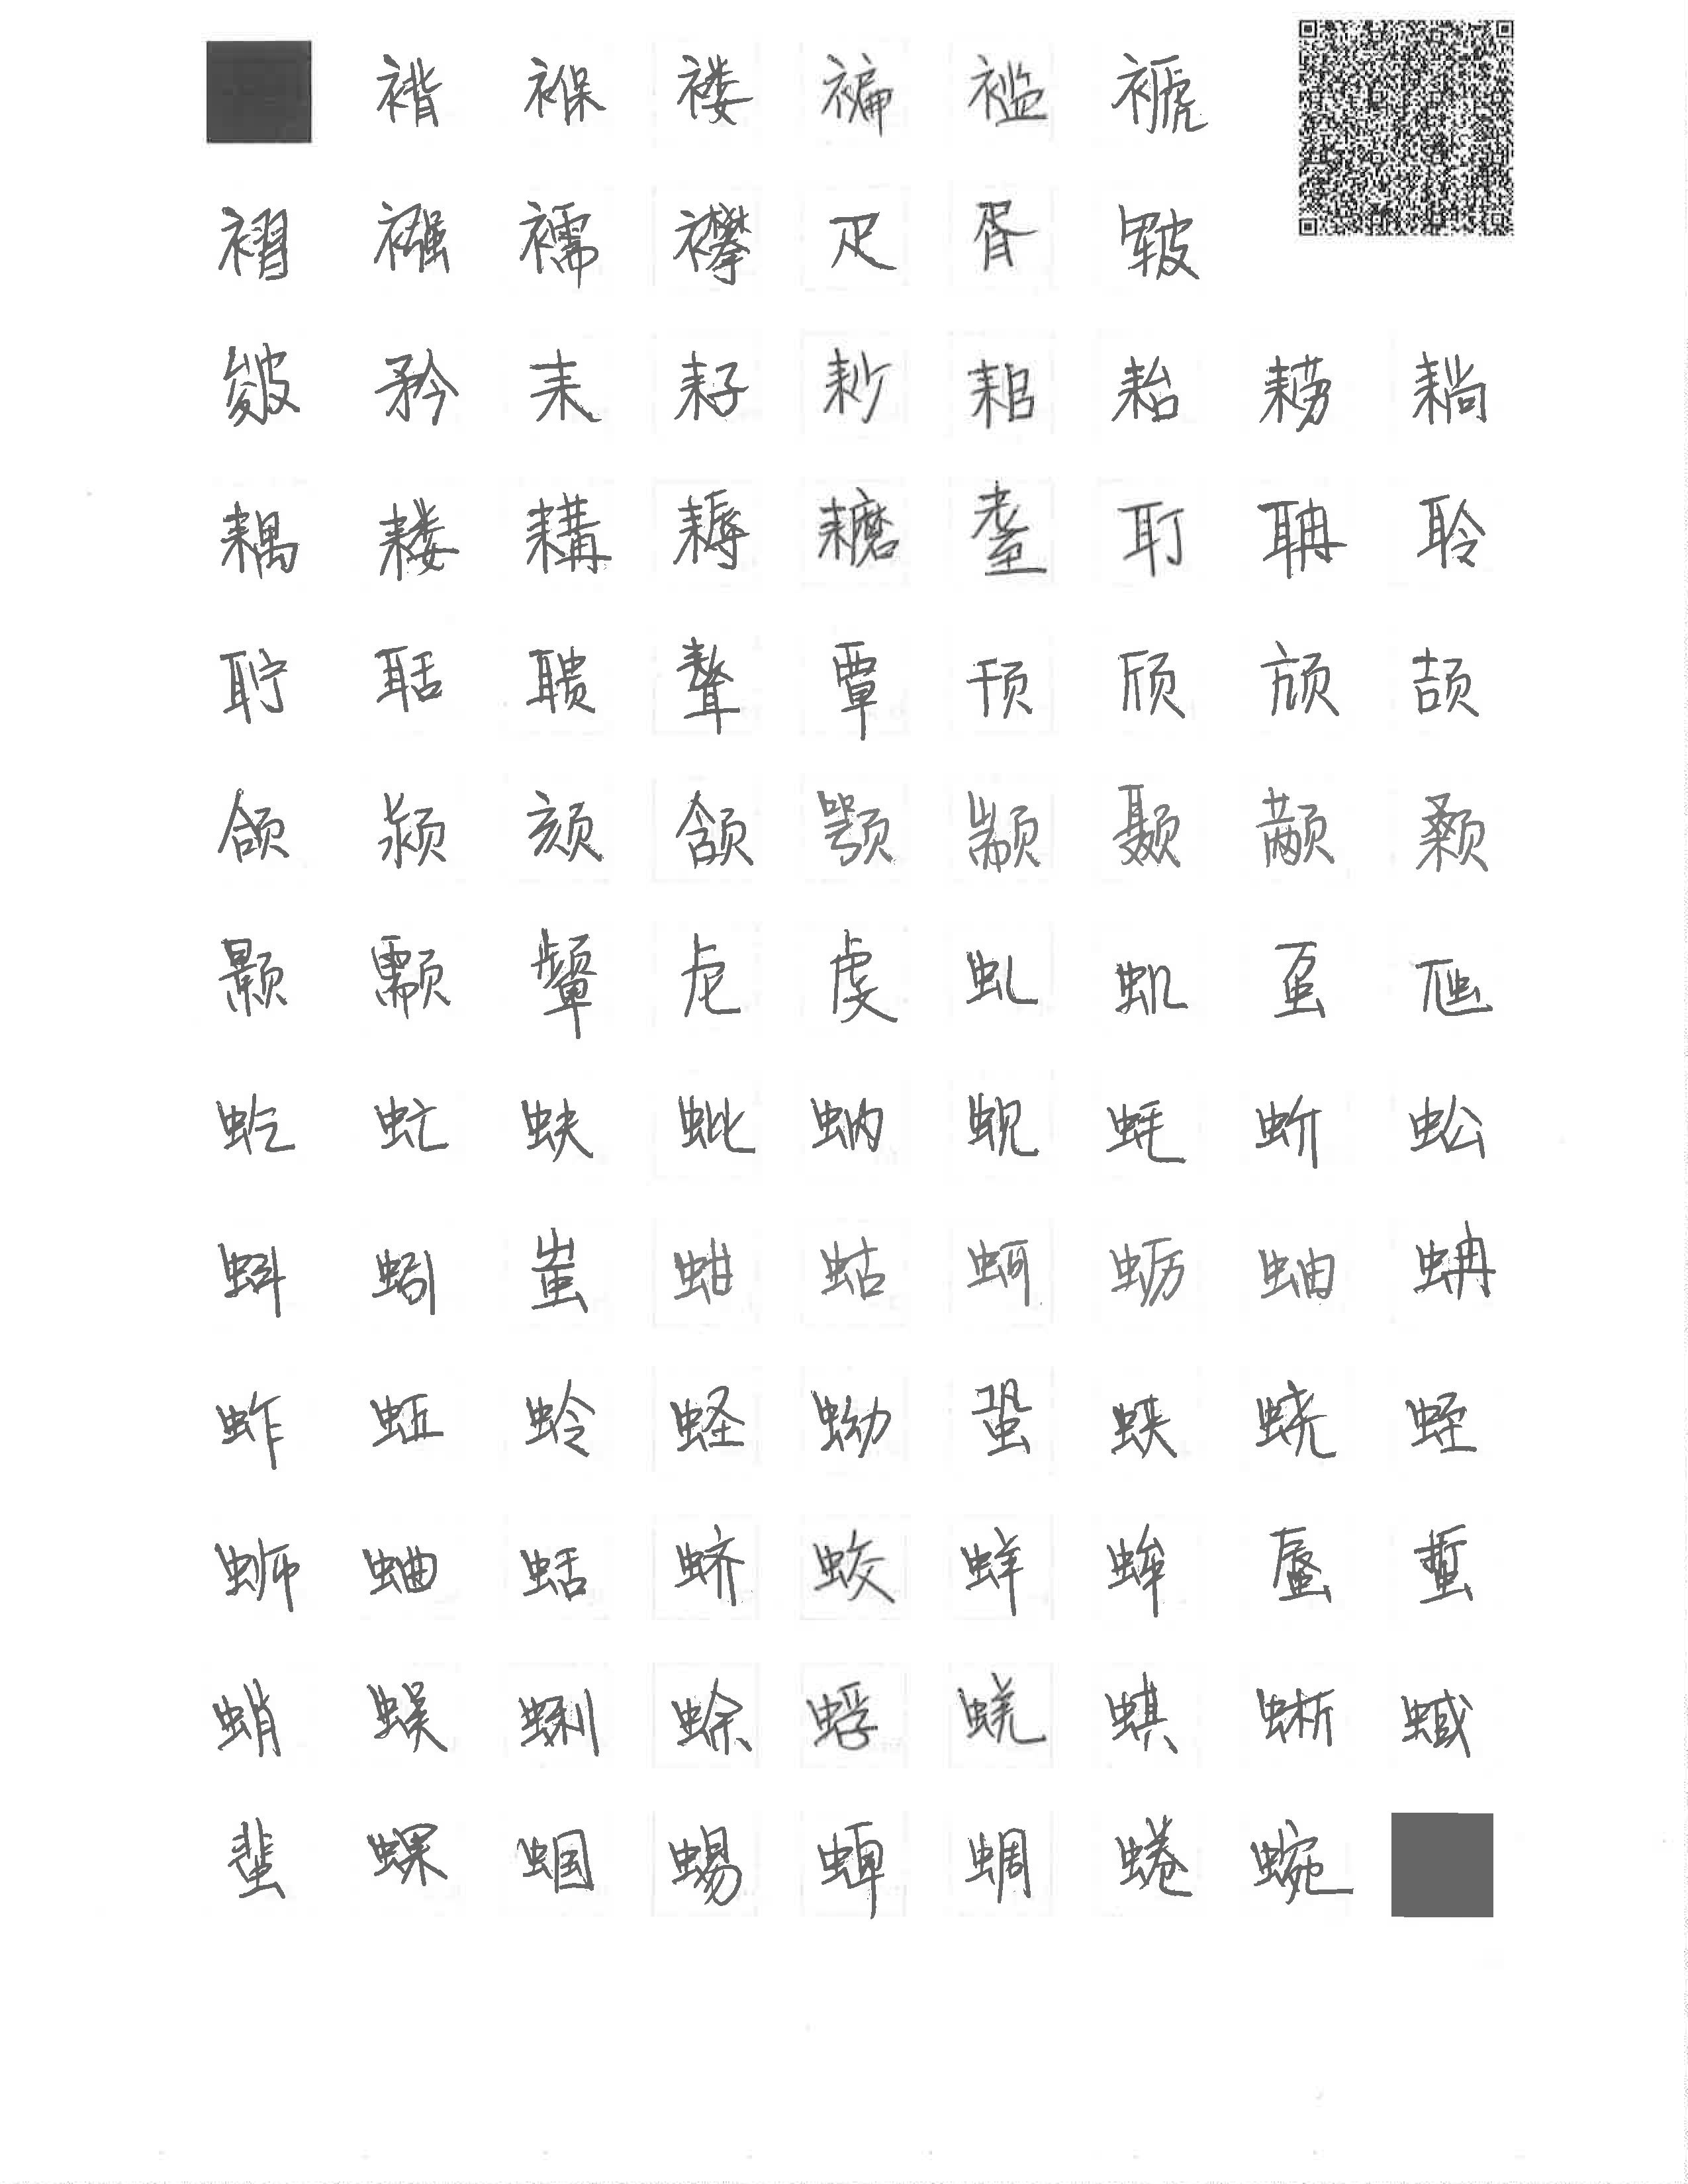 褙褓褛褊褴褫
褶襁襦襻疋胥皲
皴矜耒耔耖耜耠耢耥
耦耧耩耨耱耋耵聃聆
聍聒聩聱覃顸颀颃颉
颌颍颏颔颚颛颞颟颡
颢颥颦虍虔虬虮虿虺
虼虻蚨蚍蚋蚬蚝蚧蚣
蚪蚓蚩蚶蛄蚵蛎蚰蚺
蚱蚯蛉蛏蚴蛩蛱蛲蛭
蛳蛐蛞蛴蛟蛘蛑蜃蜇
蛸蜈蜊蜍蜉蜣蜞蜥蜮
蜚蜾蝈蜴蜱蜩蜷蜿